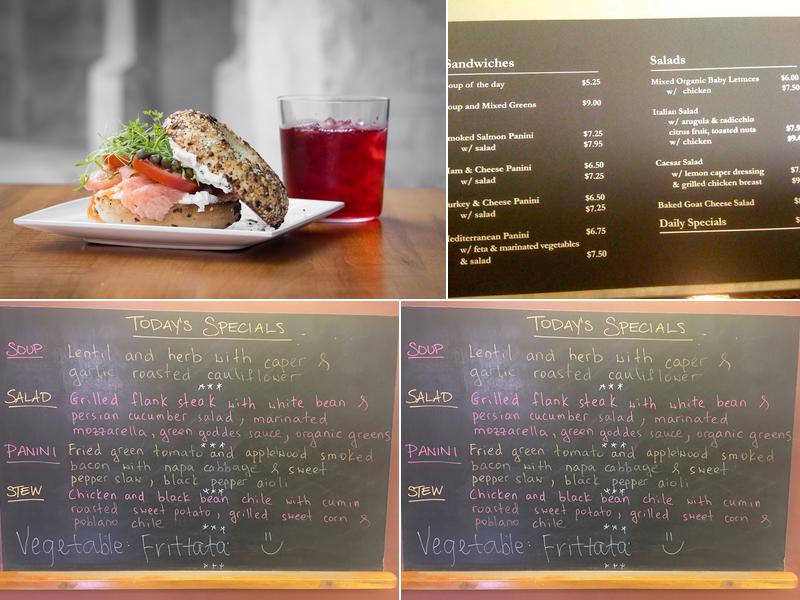 Sandwiches
oup of the day $5.25
oup and Mixed Greens $9.00
moked Salmon Panini $7.25
w/ salad $7.95
am & Cheese Panini $6.50
w/ salad $7.25
urkey & Cheese Panini $6.50
w/ salad $7.25
editerranean Panini $6.75
w/ feta & marinated vegetables
& salad $7.50
Salads
Mixed Organic Baby Lettuces $6.00
w/ chicken $7.50
Italian Salad
w/ arugula & radicchio
citrus fruit, toasted nuts
w/ chicken
Caesar Salad
w/ lemon caper dressing
& grilled chicken breast
Baked Goat Cheese Salad
Daily Specials
TODAY'S SPECIALS
SOUP Lentil and herb with caper &
garlic roasted cauliflower
***
SALAD Grilled flank steak with white bean &
persian cucumber salad, marinated
mozzarella, green goddes sauce, organic greens
***
PANINI Fried green tomato and applewood smoked
bacon with napa cabbage & sweet
pepper slaw, black pepper aioli
***
STEW Chicken and black bean chile with cumin
roasted sweet potato, grilled sweet corn &
poblano chile
***
Vegetable: Frittata
***
TODAY'S SPECIALS
SOUP Lentil and herb with caper &
garlic roasted cauliflower
***
SALAD Grilled flank steak with white bean &
persian cucumber salad, marinated
mozzarella, green goddes sauce, organic greens
***
PANINI Fried green tomato and applewood smoked
bacon with napa cabbage & sweet
pepper slaw, black pepper aioli
***
STEW Chicken and black bean chile with cumin
roasted sweet potato, grilled sweet corn &
poblano chile
***
Vegetable: Frittata
***